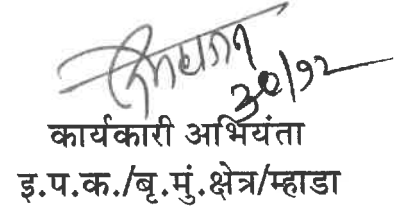 ३०/१२
कार्यकारी अभियंता
इ.प.क./बृ.मुं.क्षेत्र/म्हाडा